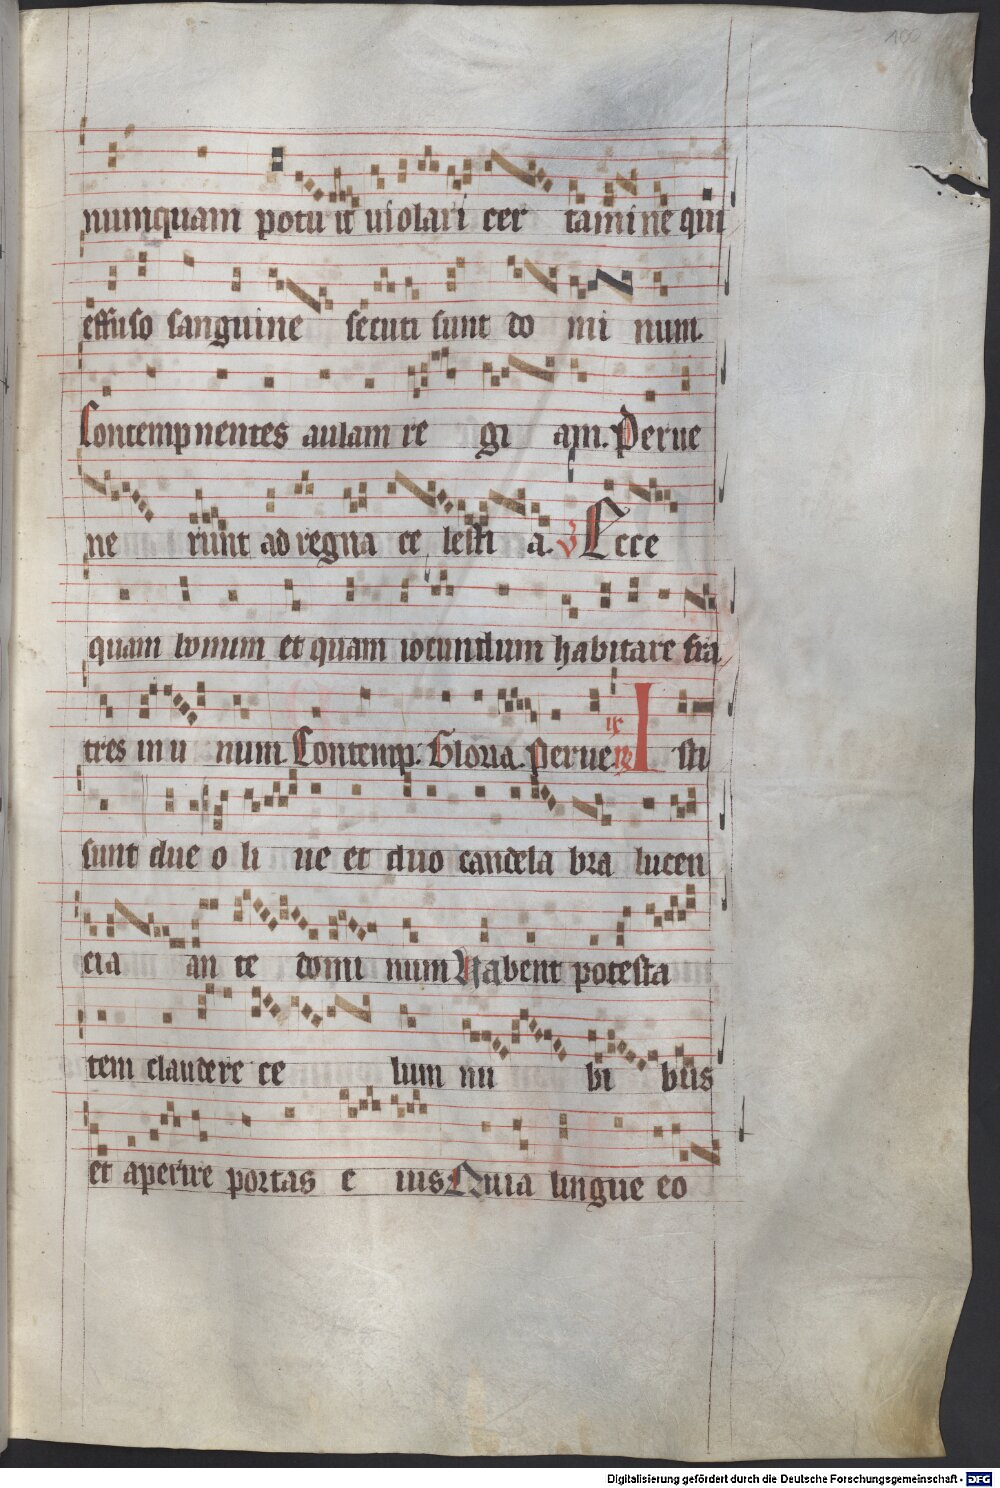 100
numquam potu it uiolari cer tamine qui
effuso sanguine secuti sunt do mi num.
Contempnentes aulam re gi am. Perue
ne runt ad regna ce lesti a. V Ecce
quam bonum et quam iocundum habitare fra
tres in u num. Contemp. Gloria. Perue. ix R Isti
sunt due o li ue et duo candela bra lucen
cia an te domi num Habent potesta
tem claudere ce lum nu bi bus
et aperire portas e ius Quia lingue eo
Digitalisierung gefördert durch die Deutsche Forschungsgemeinschaft - DFG